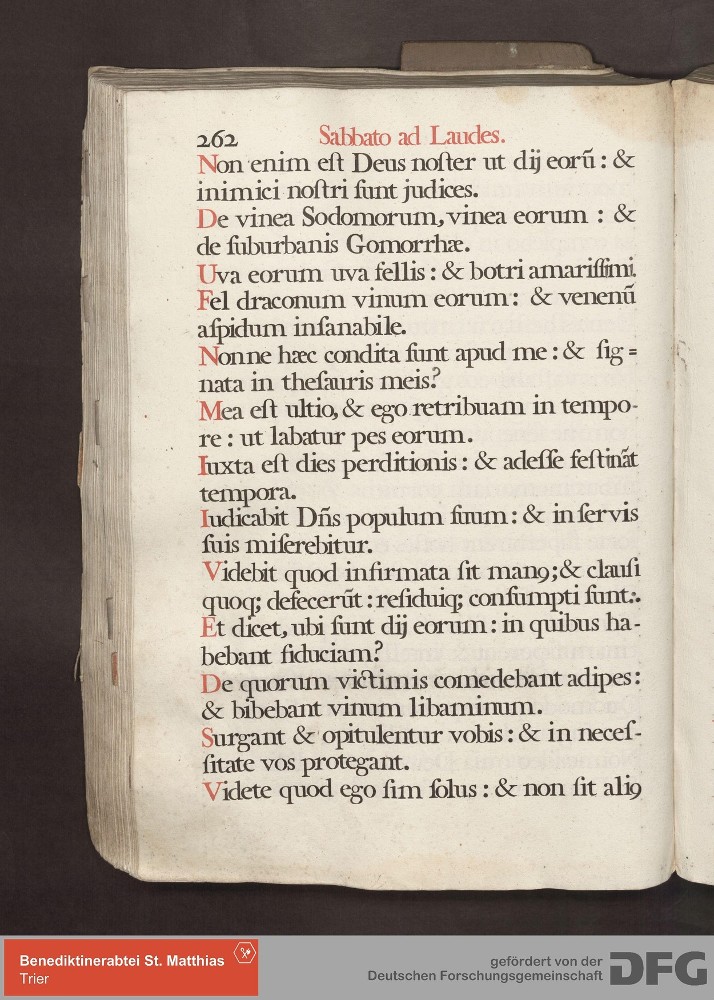 262 Sabbato ad Laudes.
Non enim eſt Deus noſter ut dij eorũ : &
inimici noſtri ſunt judices.
De vinea Sodomorum, vinea eorum : &
de ſuburbanis Gomorrhæ.
Uva eorum uva fellis : & botri amariſſimi.
Fel draconum vinum eorum : & venenũ
aſpidum inſanabile.
Nonne hæc condita ſunt apud me : & ſig=
nata in theſauris meis?
Mea eſt ultio, & ego retribuam in tempo-
re : ut labatur pes eorum.
Iuxta eſt dies perditionis : & adeſſe feſtinãt
tempora.
Iudicabit Dñs populum ſuum : & in ſervis
ſuis miſerebitur.
Videbit quod infirmata ſit manꝰ; & clauſi
quoq; defecerũt : reſiduiq; conſumpti ſunt∴
Et dicet, ubi ſunt dij eorum : in quibus ha-
bebant fiduciam?
De quorum victimis comedebant adipes :
& bibebant vinum libaminum.
Surgant & opitulentur vobis : & in neceſ-
ſitate vos protegant.
Videte quod ego ſim ſolus : & non ſit aliꝰ
Benediktinerabtei St. Matthias
Trier
gefördert von der
Deutschen Forschungsgemeinschaft DFG